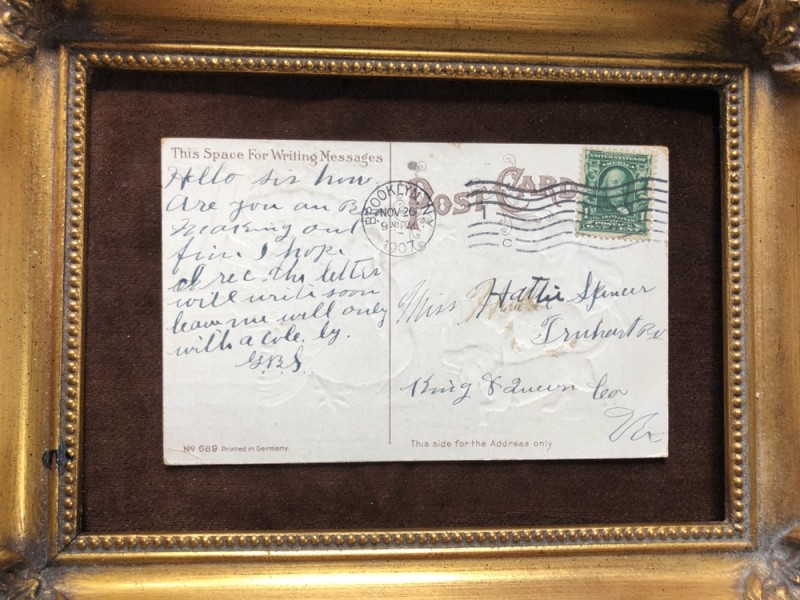 This Space For Writing Messages
Hello sir how
Are you an B
making out
fin. I hope
I rec. the letter
will write soon
leave me will only
with a cole. by.
G.B.S.
No 669 Printed in Germany.
POST CARD
BROOKLYN, N.Y.
NOV 26
1907
UNITED STATES OF
Miss Hattie Spencer
Truhart P.O.
King & Queen Co
Va
This side for the Address only